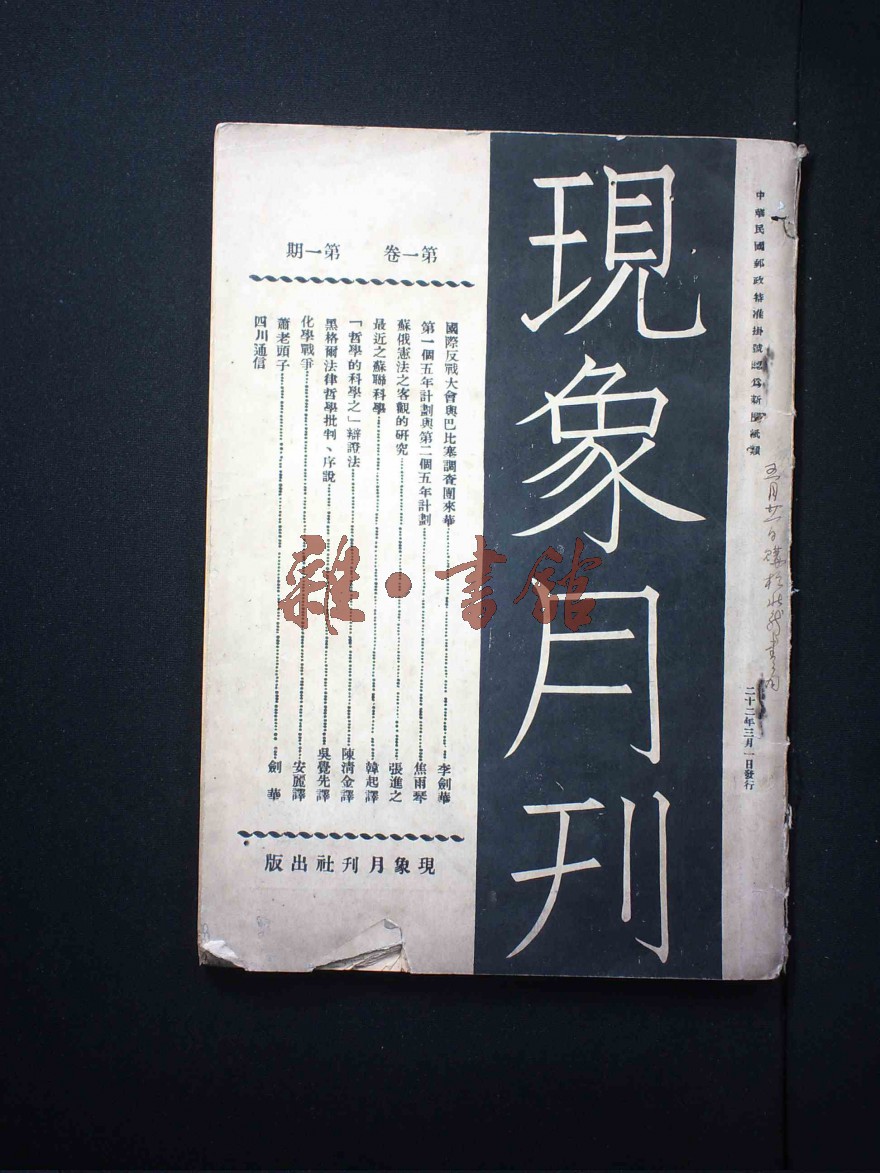 中華民國郵政特准掛號認爲新聞紙類
二十二年三月一日發行
現象月刊
第一卷 第一期
國際反戰大會與巴比塞調查團來華 李劍華
第一個五年計劃與第二個五年計劃 焦雨琴
蘇俄憲法之客觀的研究 張進之
最近之蘇聯科學 韓起譯
「哲學的科學之」辯證法 陳清金譯
黑格爾法律哲學批判、序說 吳覺先譯
化學戰爭 安麗譯
蕭老頭子 劍華
四川通信
現象月刊社出版
雜·書館